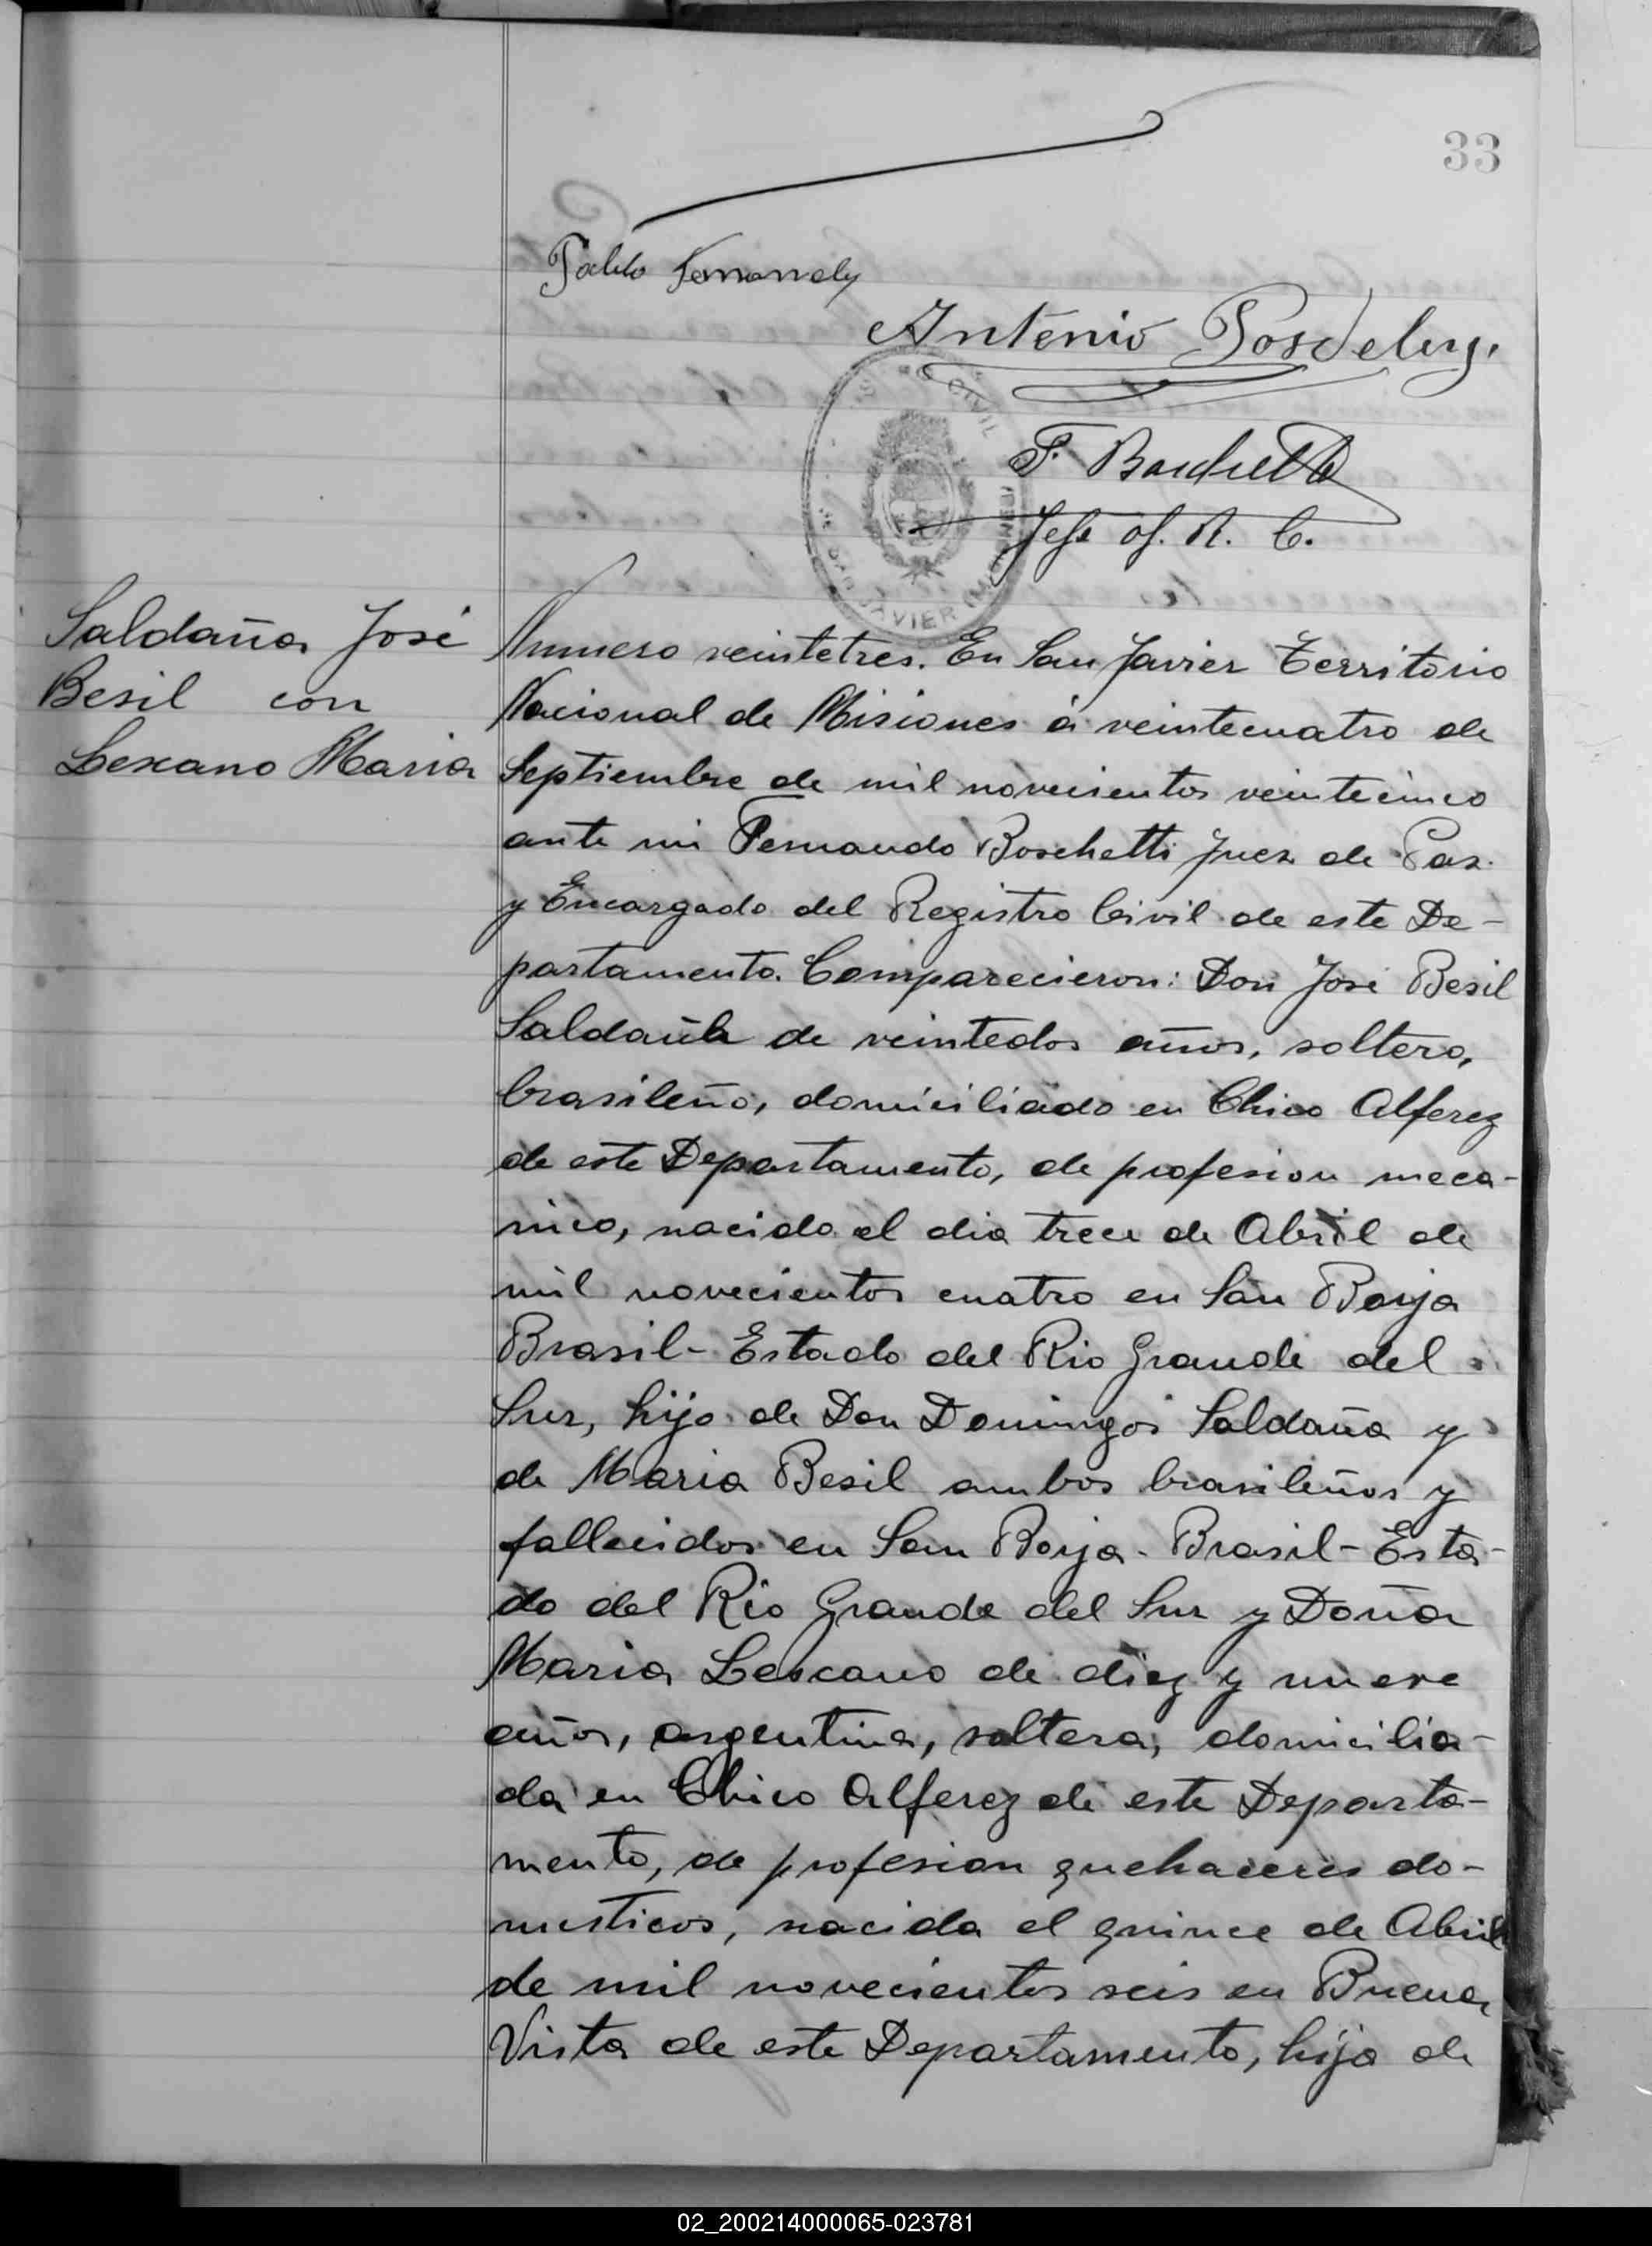 33
Pablo Fernandez
Antonio
F. Boschetti
Jefe of. R. C.
CIVIL
SAN JAVIER (MISIONES)
Saldaña José
Besil con
Lescano Maria
Numero veintetres. En San Javier Territorio
Nacional de Misiones á veintecuatro de
Septiembre de mil novecientos veintecinco
ante mi Fernando Boschetti Juez de Paz
y Encargado del Registro Civil de este De-
partamento. Comparecieron: Don José Besil
Saldaña de veintedos años, soltero,
brasileño, domiciliado en Chico Alferez
de este Departamento, de profesion meca-
nico, nacido el dia trece de Abril de
mil novecientos cuatro en San Borja
Brasil - Estado del Rio Grande del
Sur, hijo de Don Domingos Saldaña y
de Maria Besil ambos brasileños y
fallecidos en San Borja - Brasil - Esta-
do del Rio Grande del Sur y Doña
Maria Lescano de diez y nueve
años, argentina, soltera, domicilia-
da en Chico Alferez de este Departa-
mento, de profesion quehaceres do-
mesticos, nacida el quince de Abril
de mil novecientos seis en Buena
Vista de este Departamento, hija de
02_200214000065-023781